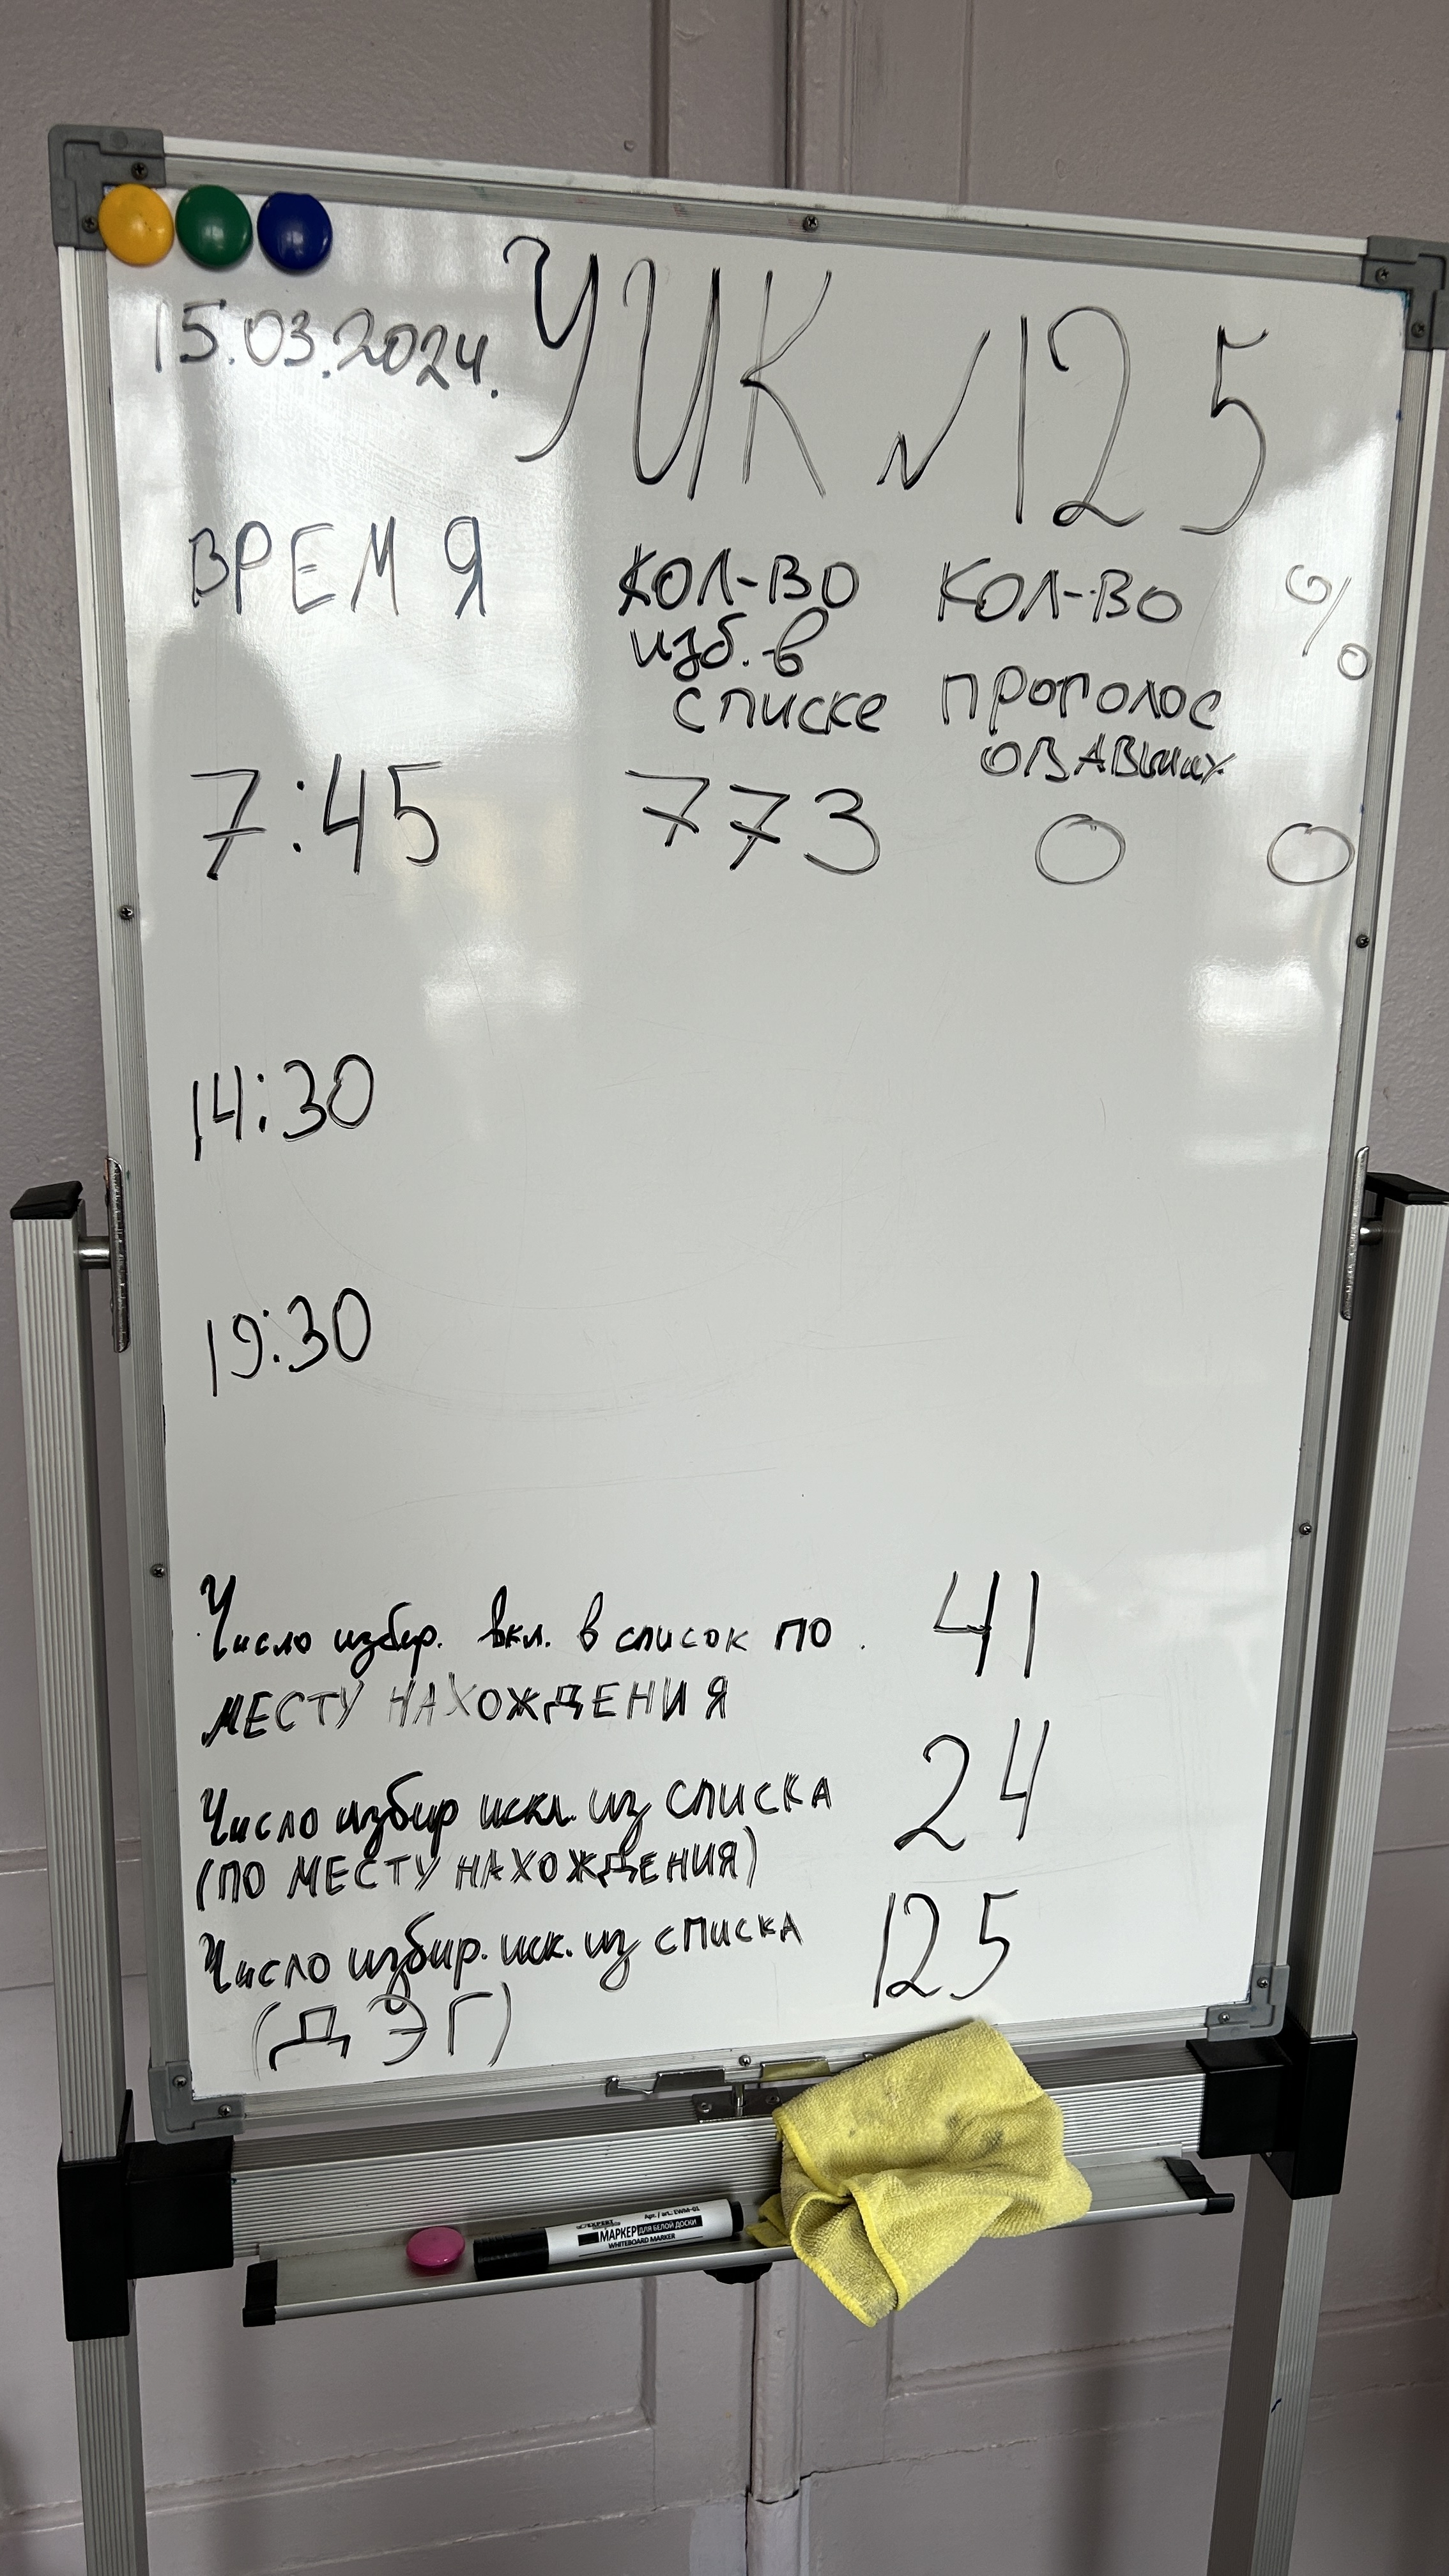 15.03.2024. УИК №125
ВРЕМЯ КОЛ-ВО КОЛ-ВО %
изб. в
списке проголос
овавших
7:45 773 0 0
14:30
19:30
Число избир. вкл. в список по 41
МЕСТУ НАХОЖДЕНИЯ
Число избир искл. из СПИСКА 24
(ПО МЕСТУ НАХОЖДЕНИЯ)
Число избир. иск. из списка 125
(ДЭГ)
EXPERT Арт. / art.: EWM-01
МАРКЕР ДЛЯ БЕЛОЙ ДОСКИ
WHITEBOARD MARKER